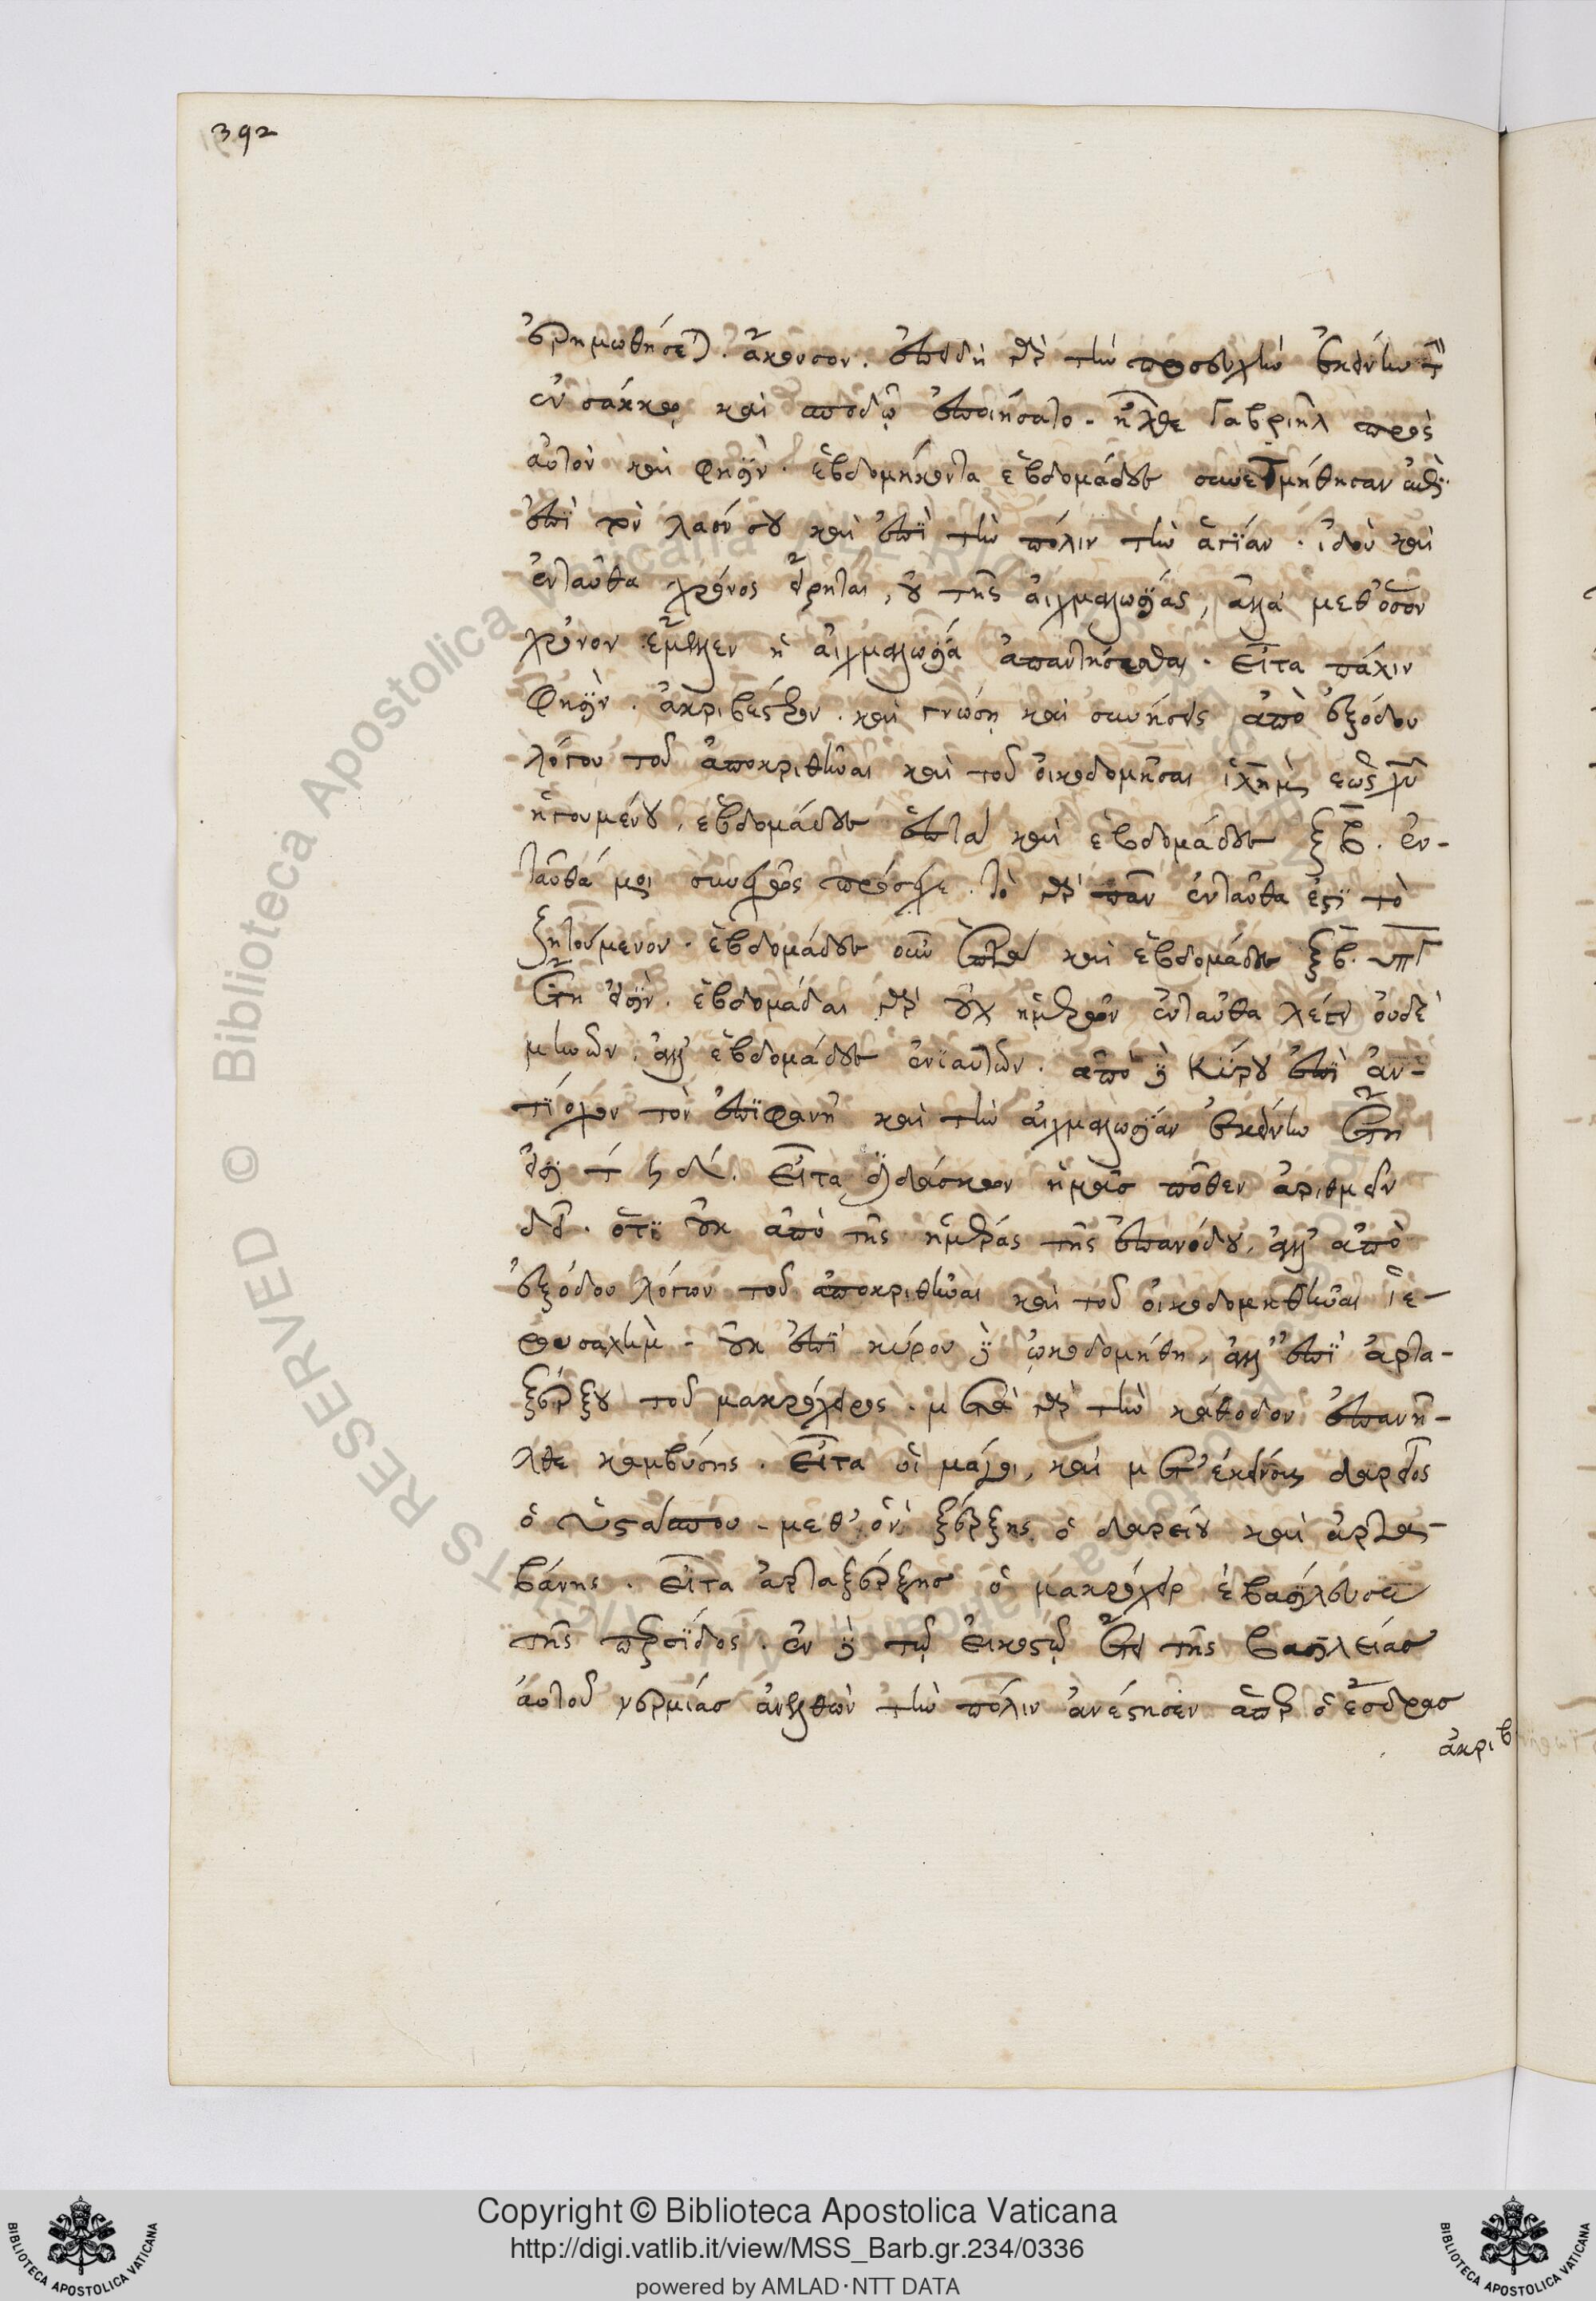 392
ἐρημωθήσεται. ἄκουσον. ἐπειδὴ γὰρ τὴν προσευχὴν ἐκείνην τὴν
ἐν σάκκῳ καὶ σποδῷ ἐποιήσατο. ἦλθε Γαβριὴλ πρὸς
αὐτὸν καὶ φησὶν. ἑβδομήκοντα ἑβδομάδες συνετμήθησαν
ἐπὶ τὸν λαόν σου καὶ ἐπὶ τὴν πόλιν τὴν ἁγίαν. ἰδοὺ καὶ
ἐνταῦθα χρόνος εἴρηται, οὐ τῆς αἰχμαλωσίας, ἀλλὰ μεθ' ὅσον
χρόνον ἔμελλεν ἡ αἰχμαλωσία ἀπαντήσεσθαι. εἶτα πάλιν
φησὶν. ἀκριβέστερον. καὶ γνώσῃ καὶ συνήσεις ἀπὸ ἐξόδου
λόγου τοῦ ἀποκριθῆναι καὶ τοῦ οἰκοδομῆσαι ἱλημ ἕως χυ
ἡγουμένου, ἑβδομάδες ἑπτὰ καὶ ἑβδομάδες ξβ. ἐν-
ταῦθά μοι συνεχῶς πρόσεχε. τὸ γὰρ πᾶν ἐνταῦθα ἐστὶ τὸ
ζητούμενον. ἑβδομάδες οὖν ἑπτὰ καὶ ἑβδομάδες ξβ. υπγ
ἔτη εἰσὶν. ἑβδομάδας γὰρ οὐχ ἡμερῶν ἐνταῦθα λέγει οὐδὲ
μηνῶν. ἀλλ' ἑβδομάδες ἐνιαυτῶν. ἀπὸ δὲ Κύρου ἐπὶ ἀν-
τίοχον τὸν ἐπιφανῆ καὶ τὴν αἰχμαλωσίαν ἐκείνην ἔτη
εἰσὶ τ ϟ δ. εἶτα διδάσκων ἡμᾶς πόθεν ἀριθμεῖν
δεῖ. ὅτι οὐκ ἀπὸ τῆς ἡμέρας τῆς ἐπανόδου, ἀλλ' ἀπὸ
ἐξόδου λόγων τοῦ ἀποκριθῆναι καὶ τοῦ οἰκοδομηθῆναι ἱε-
ρουσαλὴμ. οὐκ ἐπὶ κύρου δὲ ᾠκοδομήθη, ἀλλ' ἐπὶ ἀρτα-
ξέρξου τοῦ μακρόχειρος. μετὰ γὰρ τὴν κάθοδον ἐπανῆ-
λθε καμβύσης. εἶτα οἱ μάγοι, καὶ μετ' ἐκείνους δαρεῖος
ὁ ὑστάσπου. μεθ' ὃν ξέρξης ὁ δαρείου καὶ ἀρτα-
βάνης. εἶτα ἀρταξέρξης ὁ μακρόχειρ ἐβασίλευσε
τῆς περσίδος. ἐν δὲ τῷ εἰκοστῷ ἔτει τῆς βασιλείας
αὐτοῦ νεεμίας ἀνελθὼν τὴν πόλιν ἀνέστησεν ἅπερ ὁ ἔσδρας
ἀκριβ
Copyright © Biblioteca Apostolica Vaticana
http://digi.vatlib.it/view/MSS_Barb.gr.234/0336
powered by AMLAD·NTT DATA